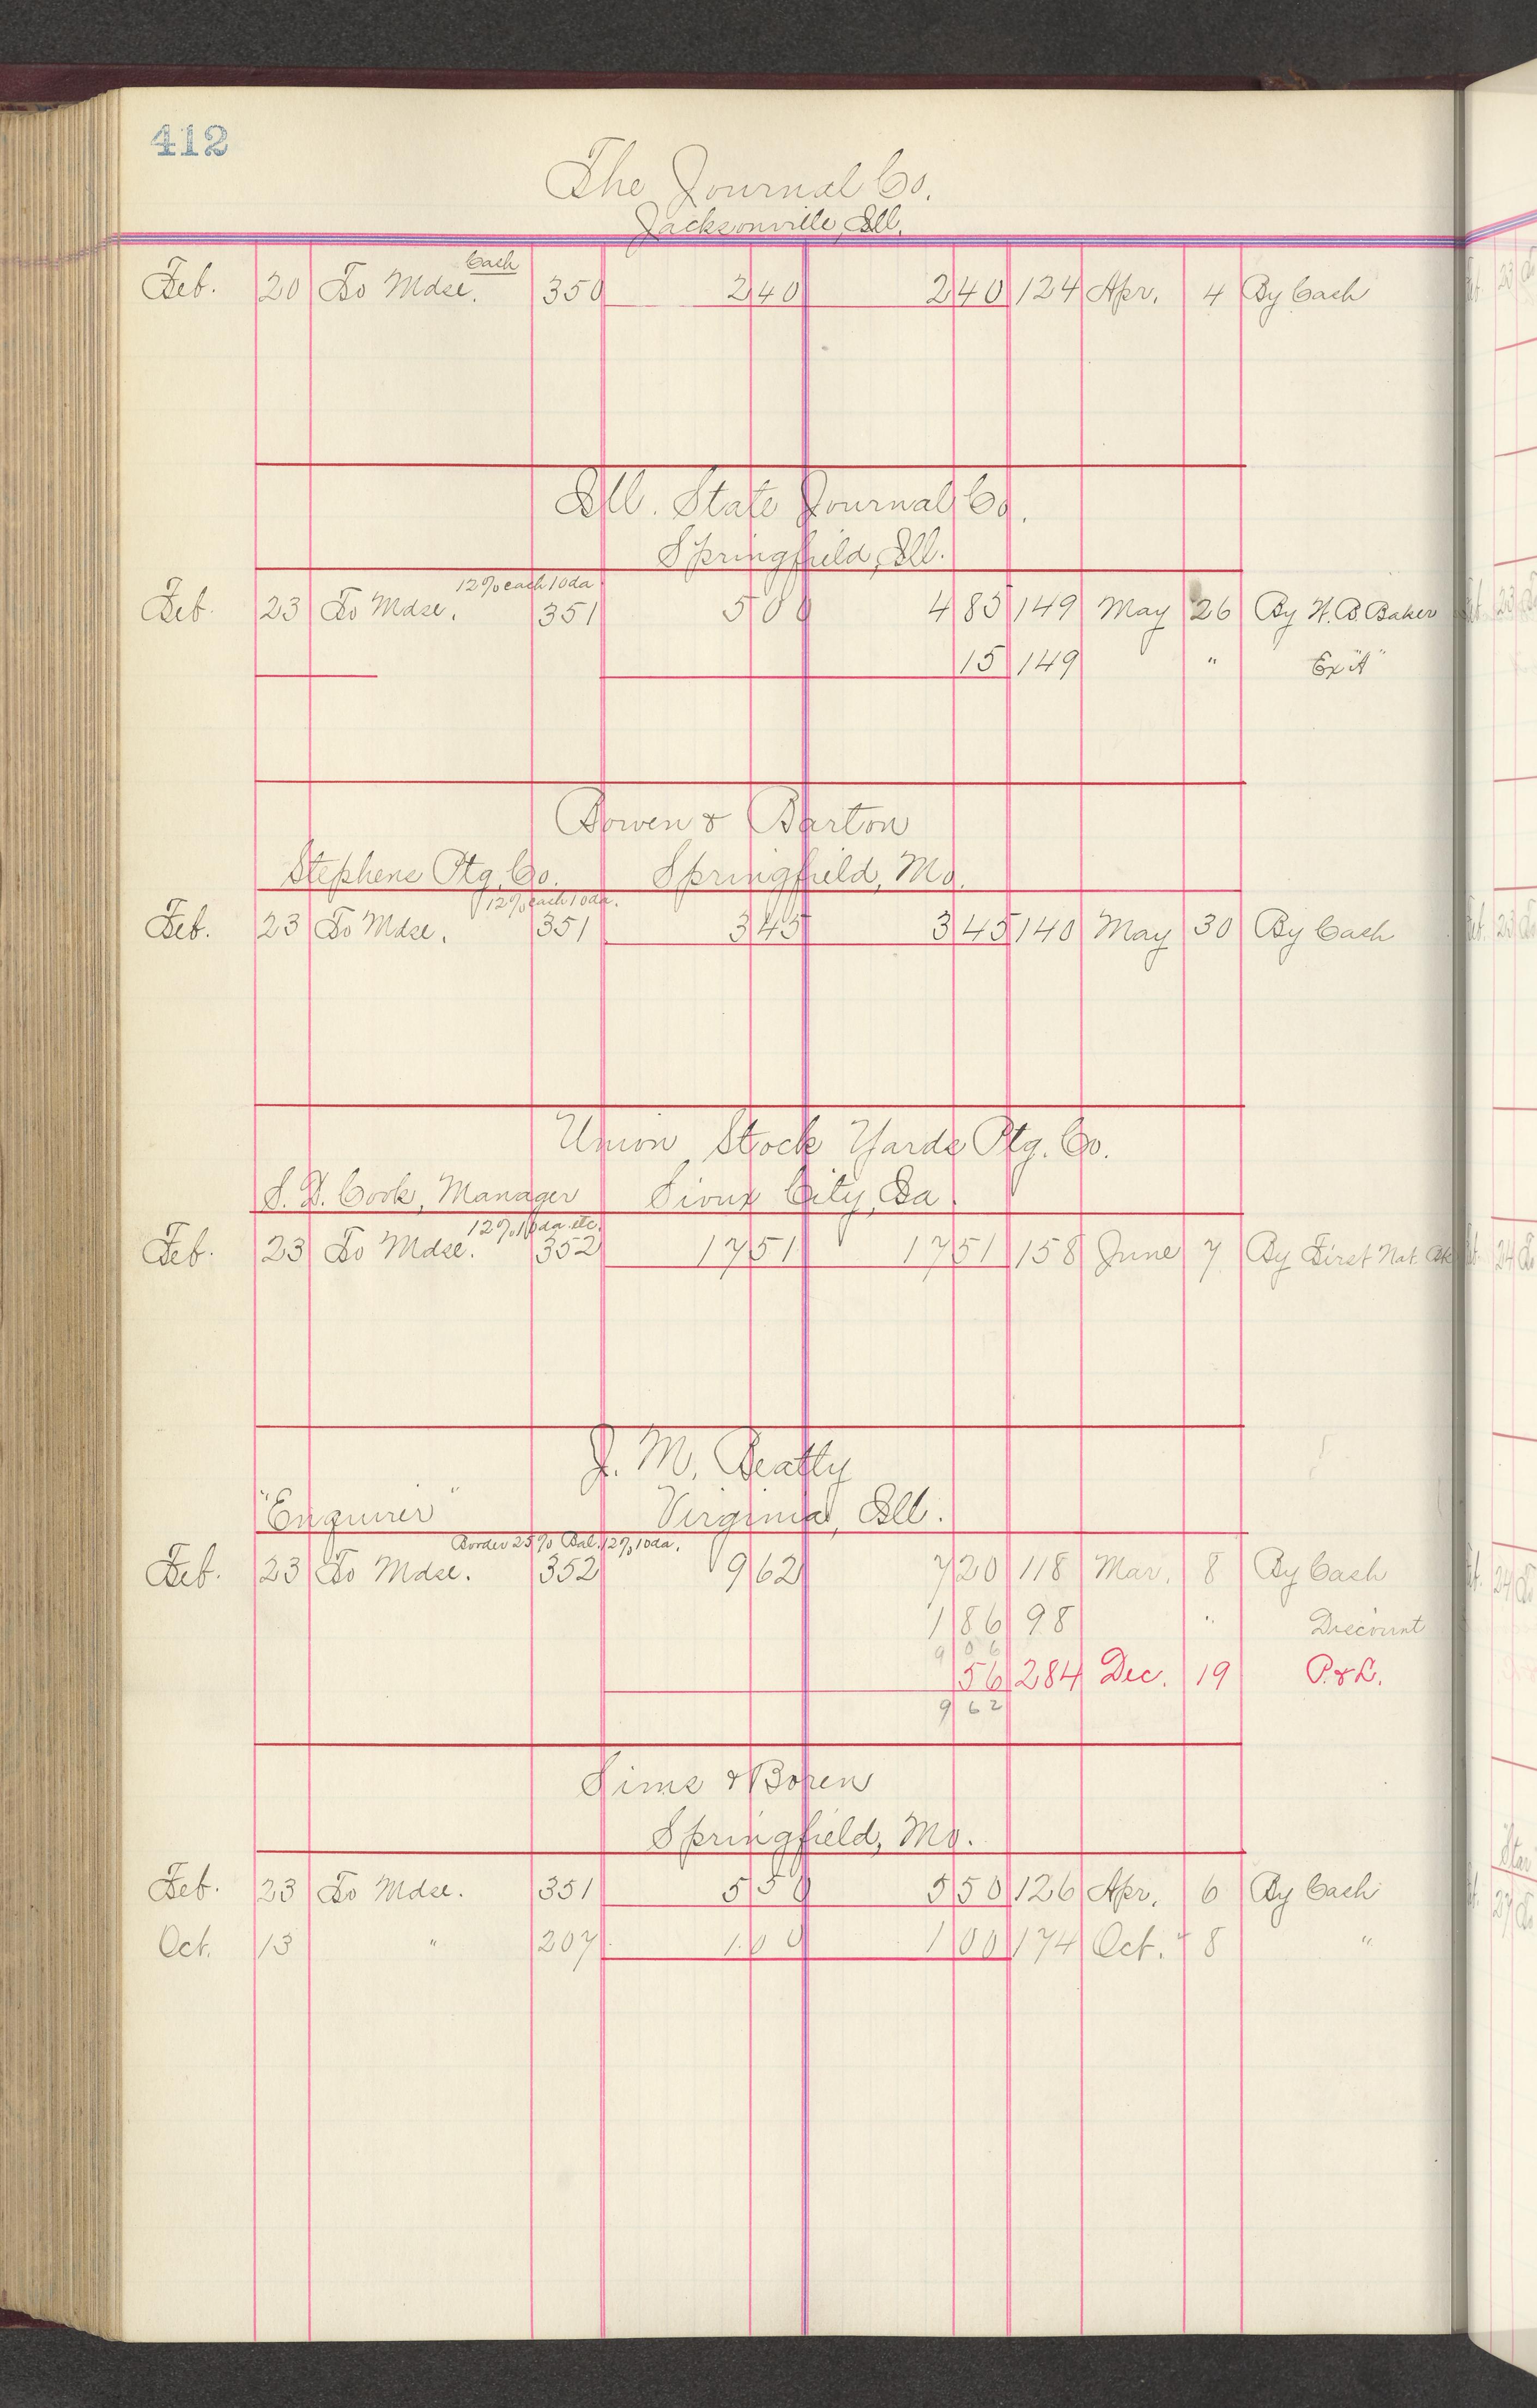 412
The Journal Co.
Jacksonville, Ill.
Cash
Feb. 20 To Mdse. 350 2 40 2 40 124 Apr. 4 By Cash
Ill. State Journal Co.
Springfield, Ill.
12% each 10 da
Feb. 23 To Mdse. 351 5 00 4 85 149 May 26 By H. B. Baker
15 149 " Ex "A"
Bowen & Barton
Stephens Ptg. Co. Springfield, Mo.
12% each 10 da.
Feb. 23 To Mdse. 351 3 45 3 45 140 May 30 By Cash
Union Stock Yards Ptg. Co.
S. D. Cook, Manager Sioux City, Ia.
12% 10 da etc.
Feb. 23 To Mdse. 352 17 51 17 51 158 June 7 By First Nat. Bk
J. M. Beatty
"Enquirer" Virginia, Ill.
Border 25% Bal. 12% 10 da.
Feb. 23 To Mdse. 352 9 62 7 20 118 Mar. 8 By Cash
1 86 98 " Discount
9 06
56 284 Dec. 19 P. & L.
9 62
Sims & Bozen
Springfield, Mo.
Feb. 23 To Mdse. 351 5 50 5 50 126 Apr. 6 By Cash
Oct. 13 " 207 1 00 1 00 174 Oct. 8 "